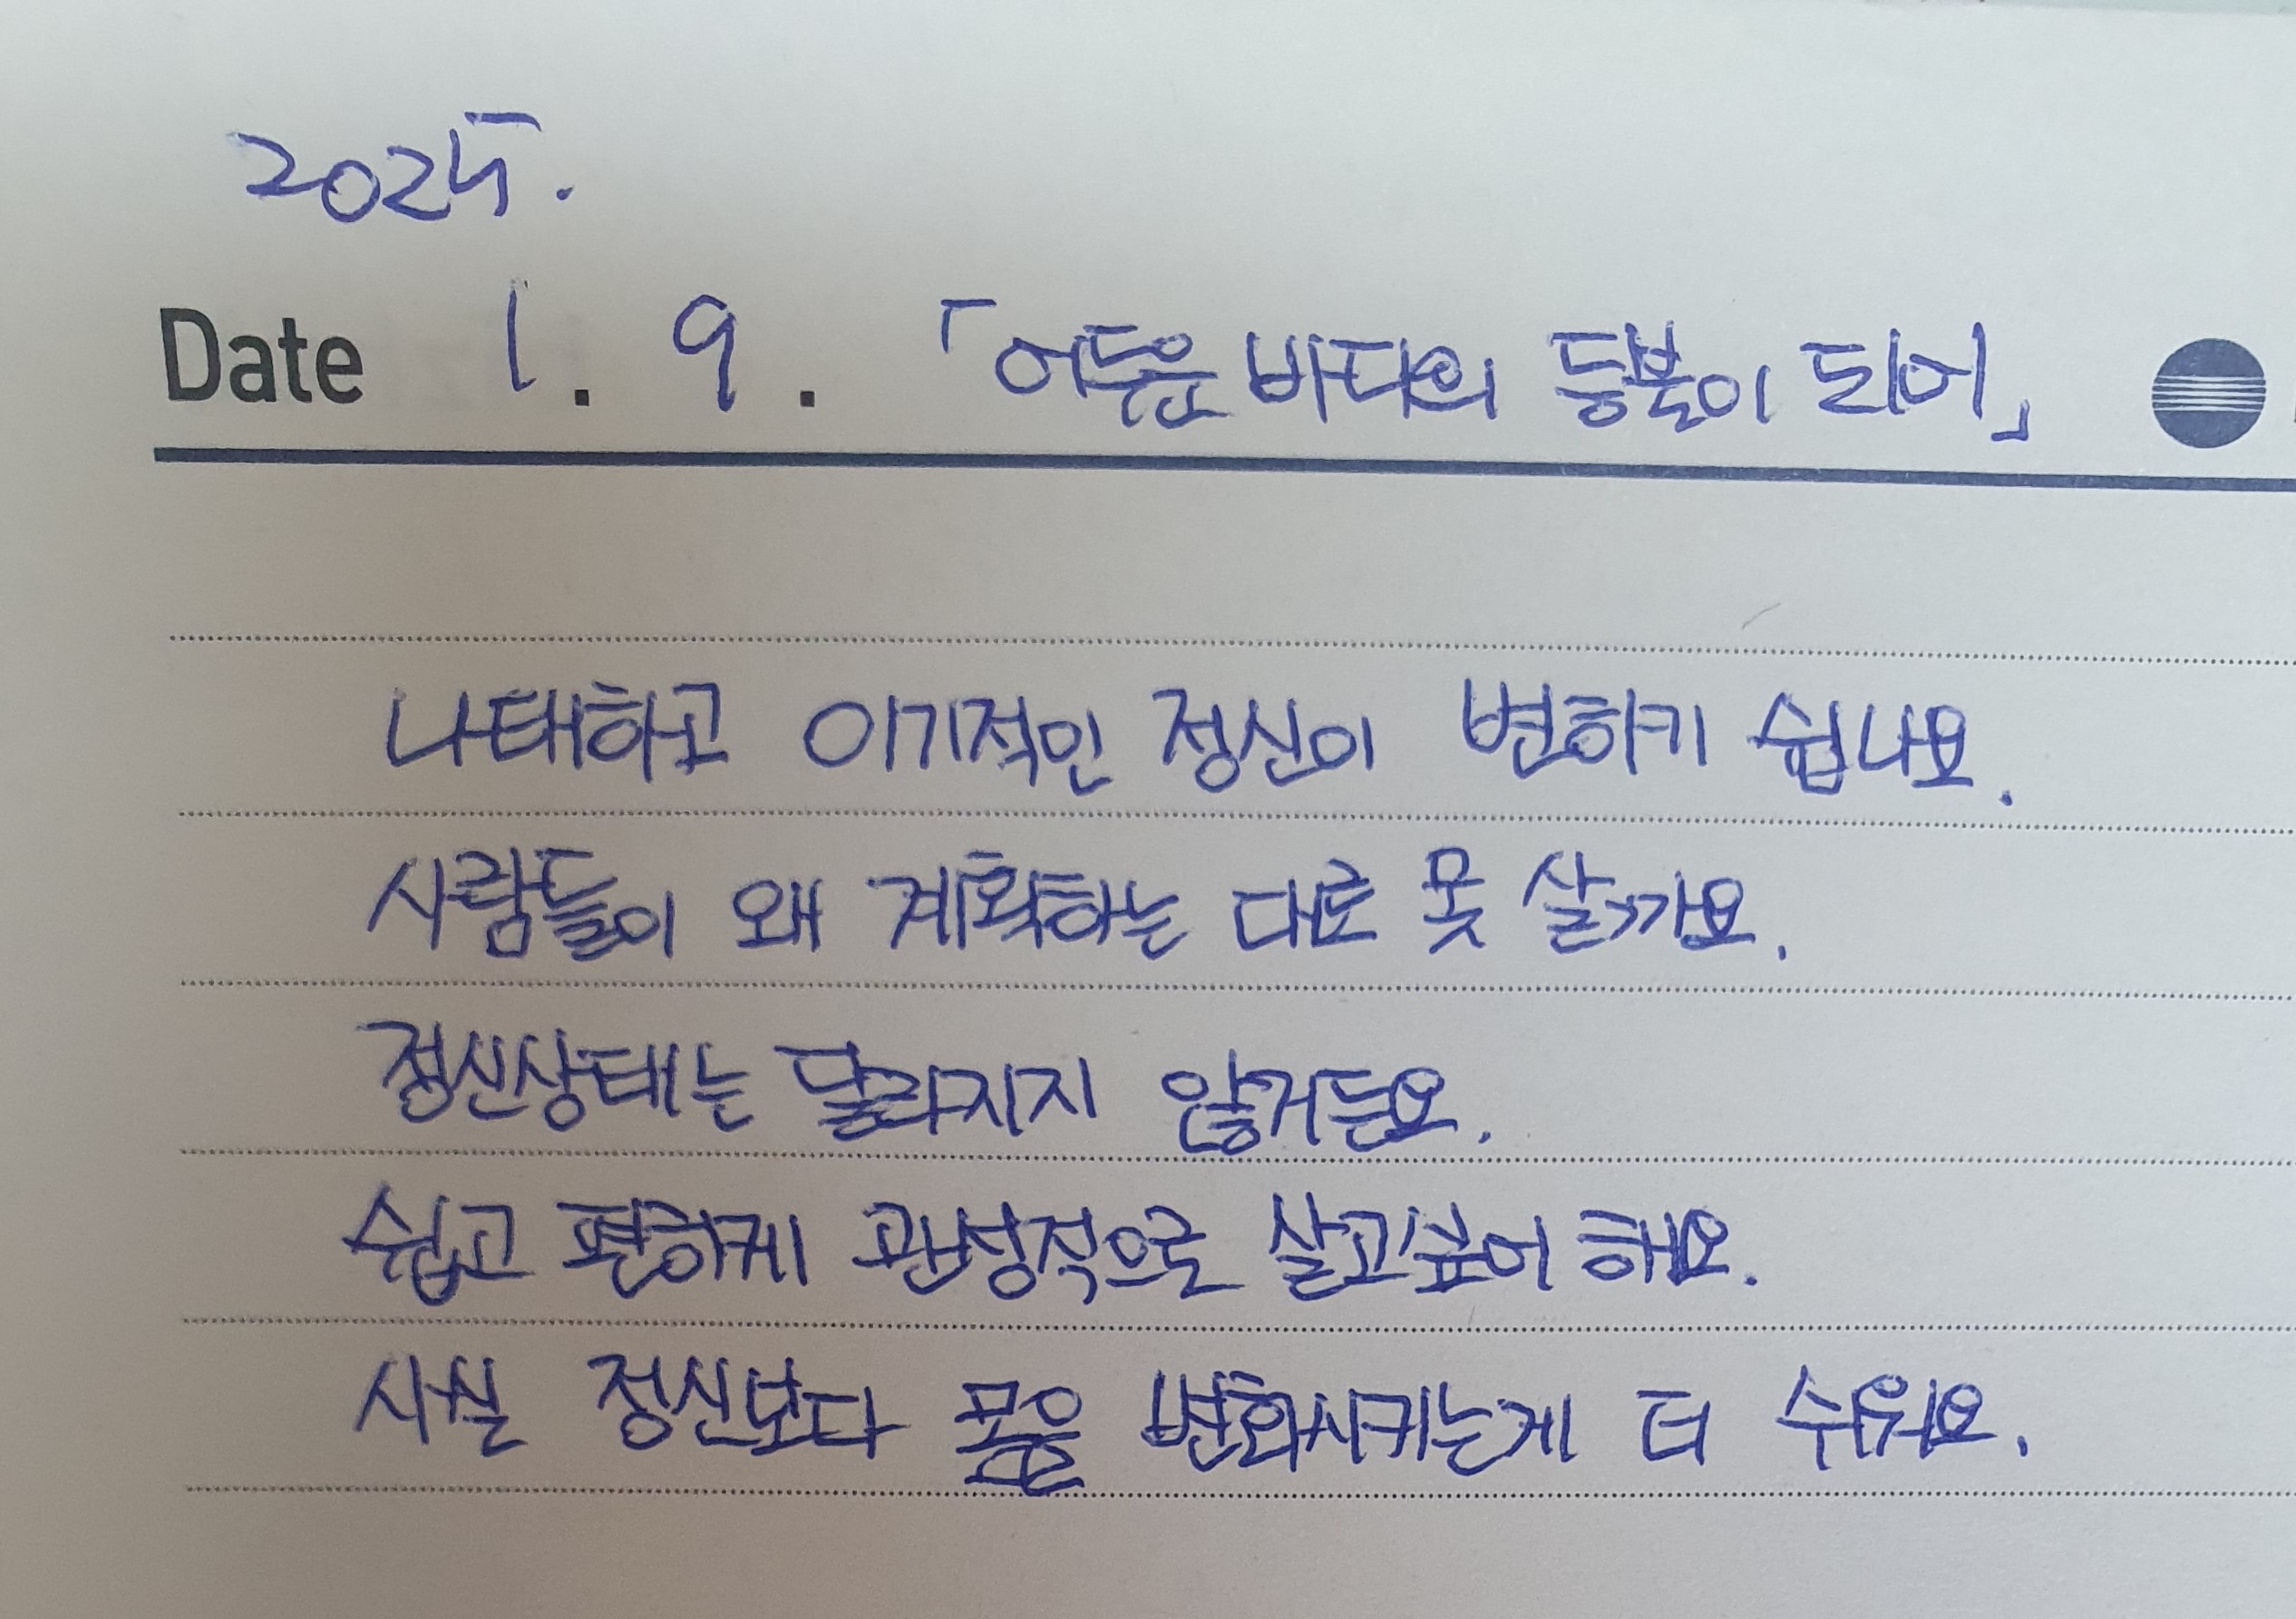 2025.
Date 1. 9. 「어두운 바다의 등불이 되어」
나태하고 이기적인 정신이 변하기 쉽나요.
사람들이 왜 계획하는 대로 못 살까요.
정신상태는 달라지지 않거든요.
쉽고 편하게 관성적으로 살고싶어 해요.
사실 정신보다 몸을 변화시키는게 더 쉬워요.